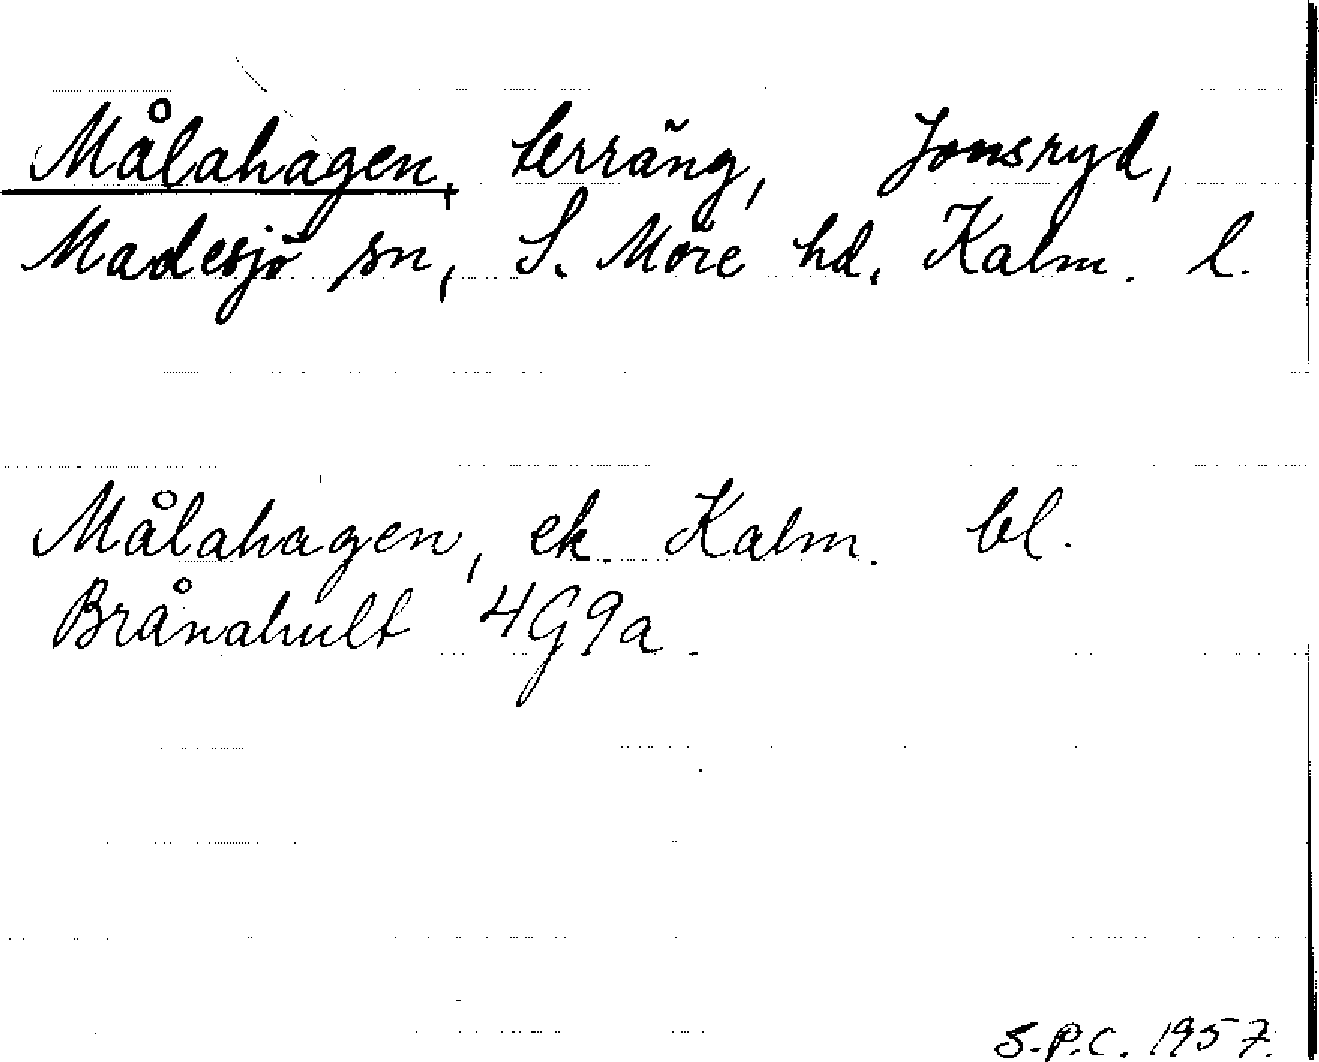 Målahagen, terräng, Jonsryd,
Madesjö sn, S. Möre hd. Kalm. l.
Målahagen, ek. Kalm. bl.
Brånahult 4G9a.
S.P.C. 1957.